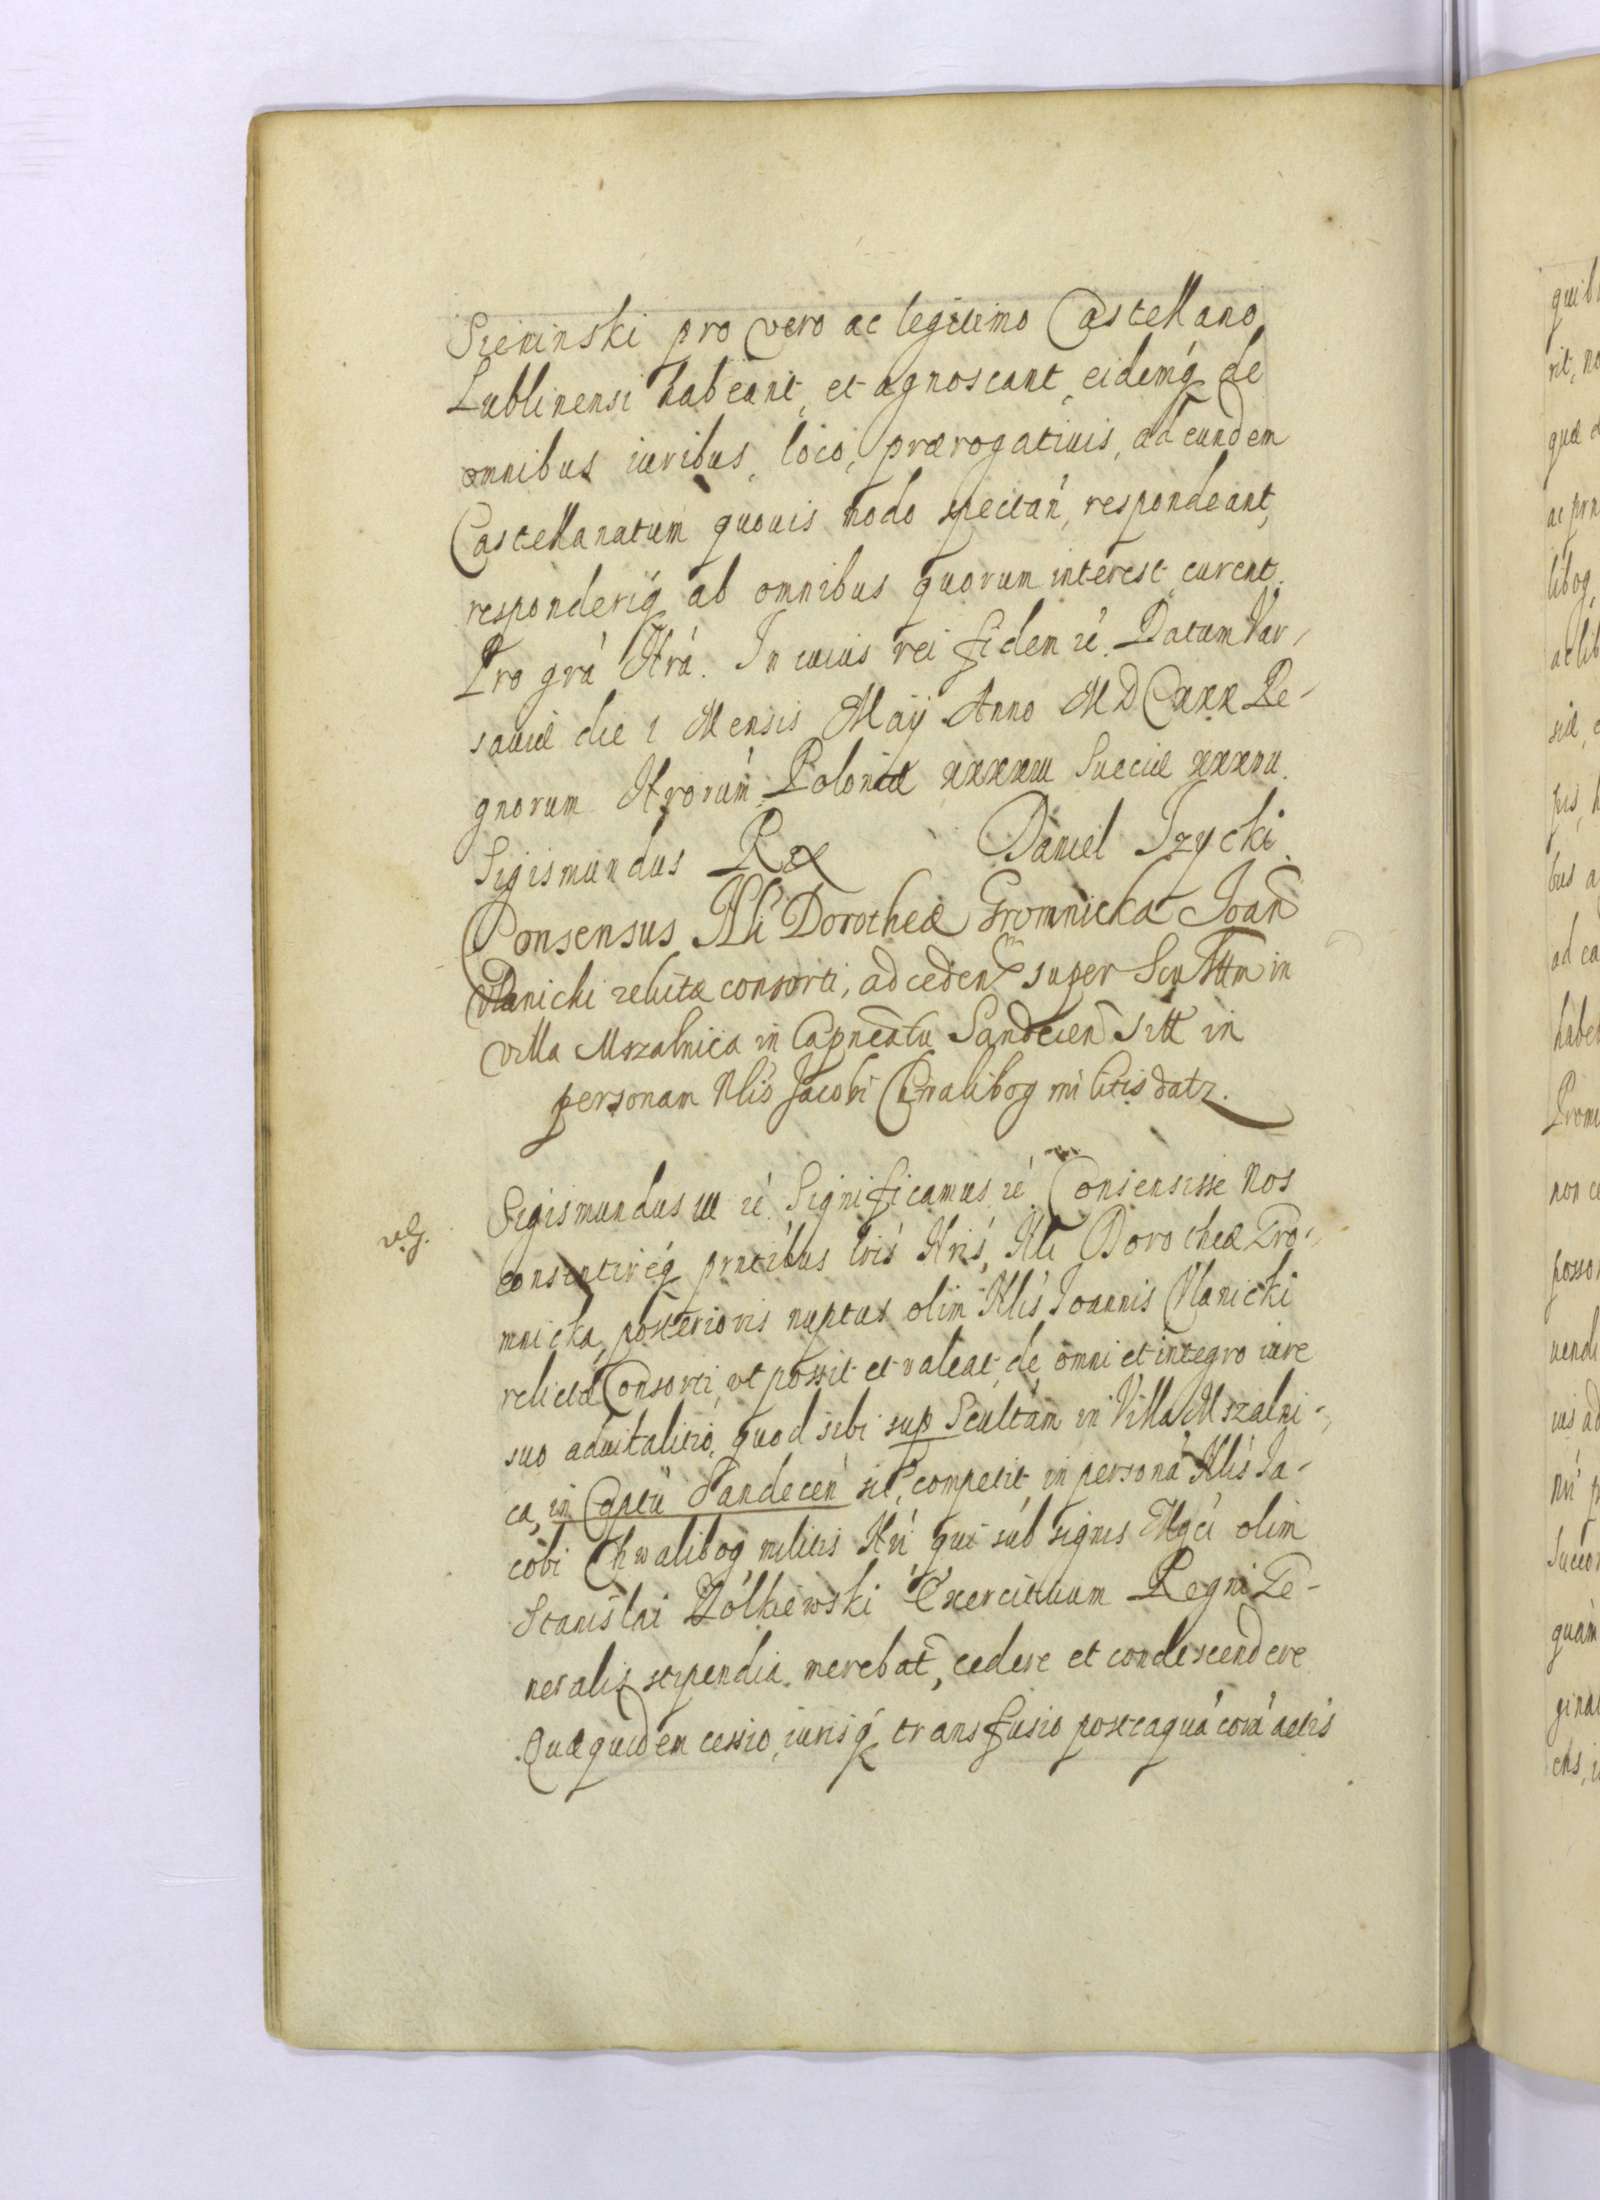 Sieninski pro vero ac legitimo Castellano
Lublinensi habeant, et agnoscant, eidemq́ de
omnibus iuribus, loco, prærogatiuis, ad eundem
Castellanatum quouis modo spectań, respondeant,
responderiq́ ab omnibus quorum interest, curent.
Pro grá Nrá. In cuius rei fidem ić. Datum Var-
sauiæ die 1 Mensis Maij Anno MDCxxx Re-
gnorum Nrorúm Poloniæ xxxxiii Sueciæ xxxvii.
Sigismundus Rex Daniel Izycki.
Consensus Nli Dorotheæ Gromnicka Joan̄
Vlanicki relictæ consorti, ad ceden̄ super Scultttm in
villa Mszalnica in Capneatu Sandecien̄ sitt in
personam Nlis Jacobi Chwalibog militis datz.
Sigismundus III ić. Significamus ić Consensisse Nos
consentireq́ prntibus lris Nris, Nli Dorotheæ Gro-
mnicka, posterioris nuptus olim Nlis Joannis Vlanicki
relictæ Consorti, vt possit et valeat, de omni et integro iure
suo aduitalitio, quod sibi sup Scultám in Villa Mszalni-
ca, in Cáptú Sandeceń sit, competit in persona Nlis Ja-
cobi Chwalibog militis Nrí qui súb signis Mgcí olim
Stanislai Zólkiewski Exercituum Regni Ge-
neralis stipendia merebat̄, cedere et condescendere
Quæquidem cessio, iurisq́ transfusio posteaquá corá actis